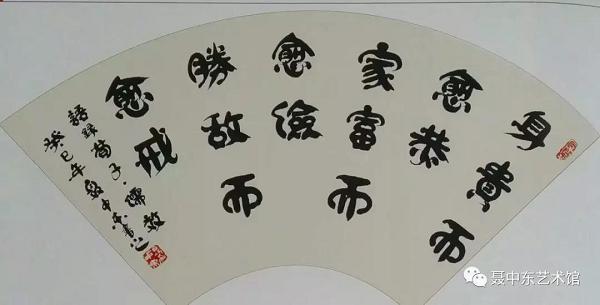 身貴而
愈恭
家富而
愈儉
勝敌而
愈戒
語錄荀子·儒效
癸巳年聂中东書
聂中东艺术馆